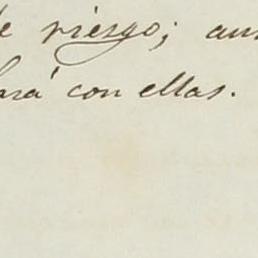 de riesgo; aun
ará con ellas.